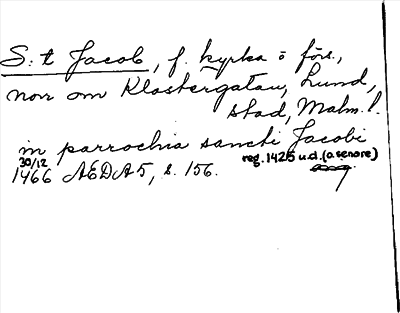 S:t Jacob, f. kyrka o förs.,
norr om Klostergatan, Lund,
stad, Malm. l.
in parrochia sancti Jacobi
30/12 reg. 1425 u.d. (o senare)
1466 ÆDA 5, s. 156.